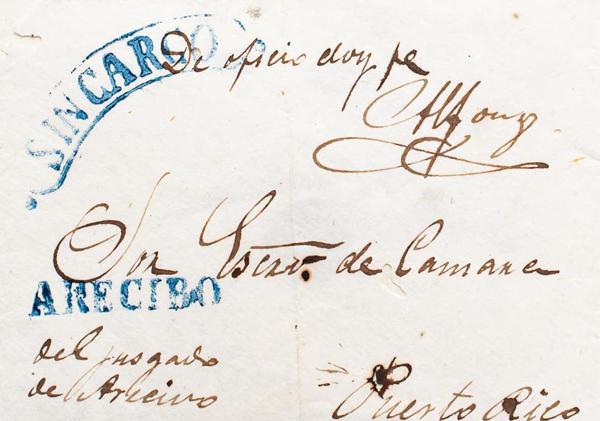 SIN CARGO
De oficio doy fe
Sor Escrv. de Camara
ARECIBO
del jusgado
de Arecivo
Puerto Rico